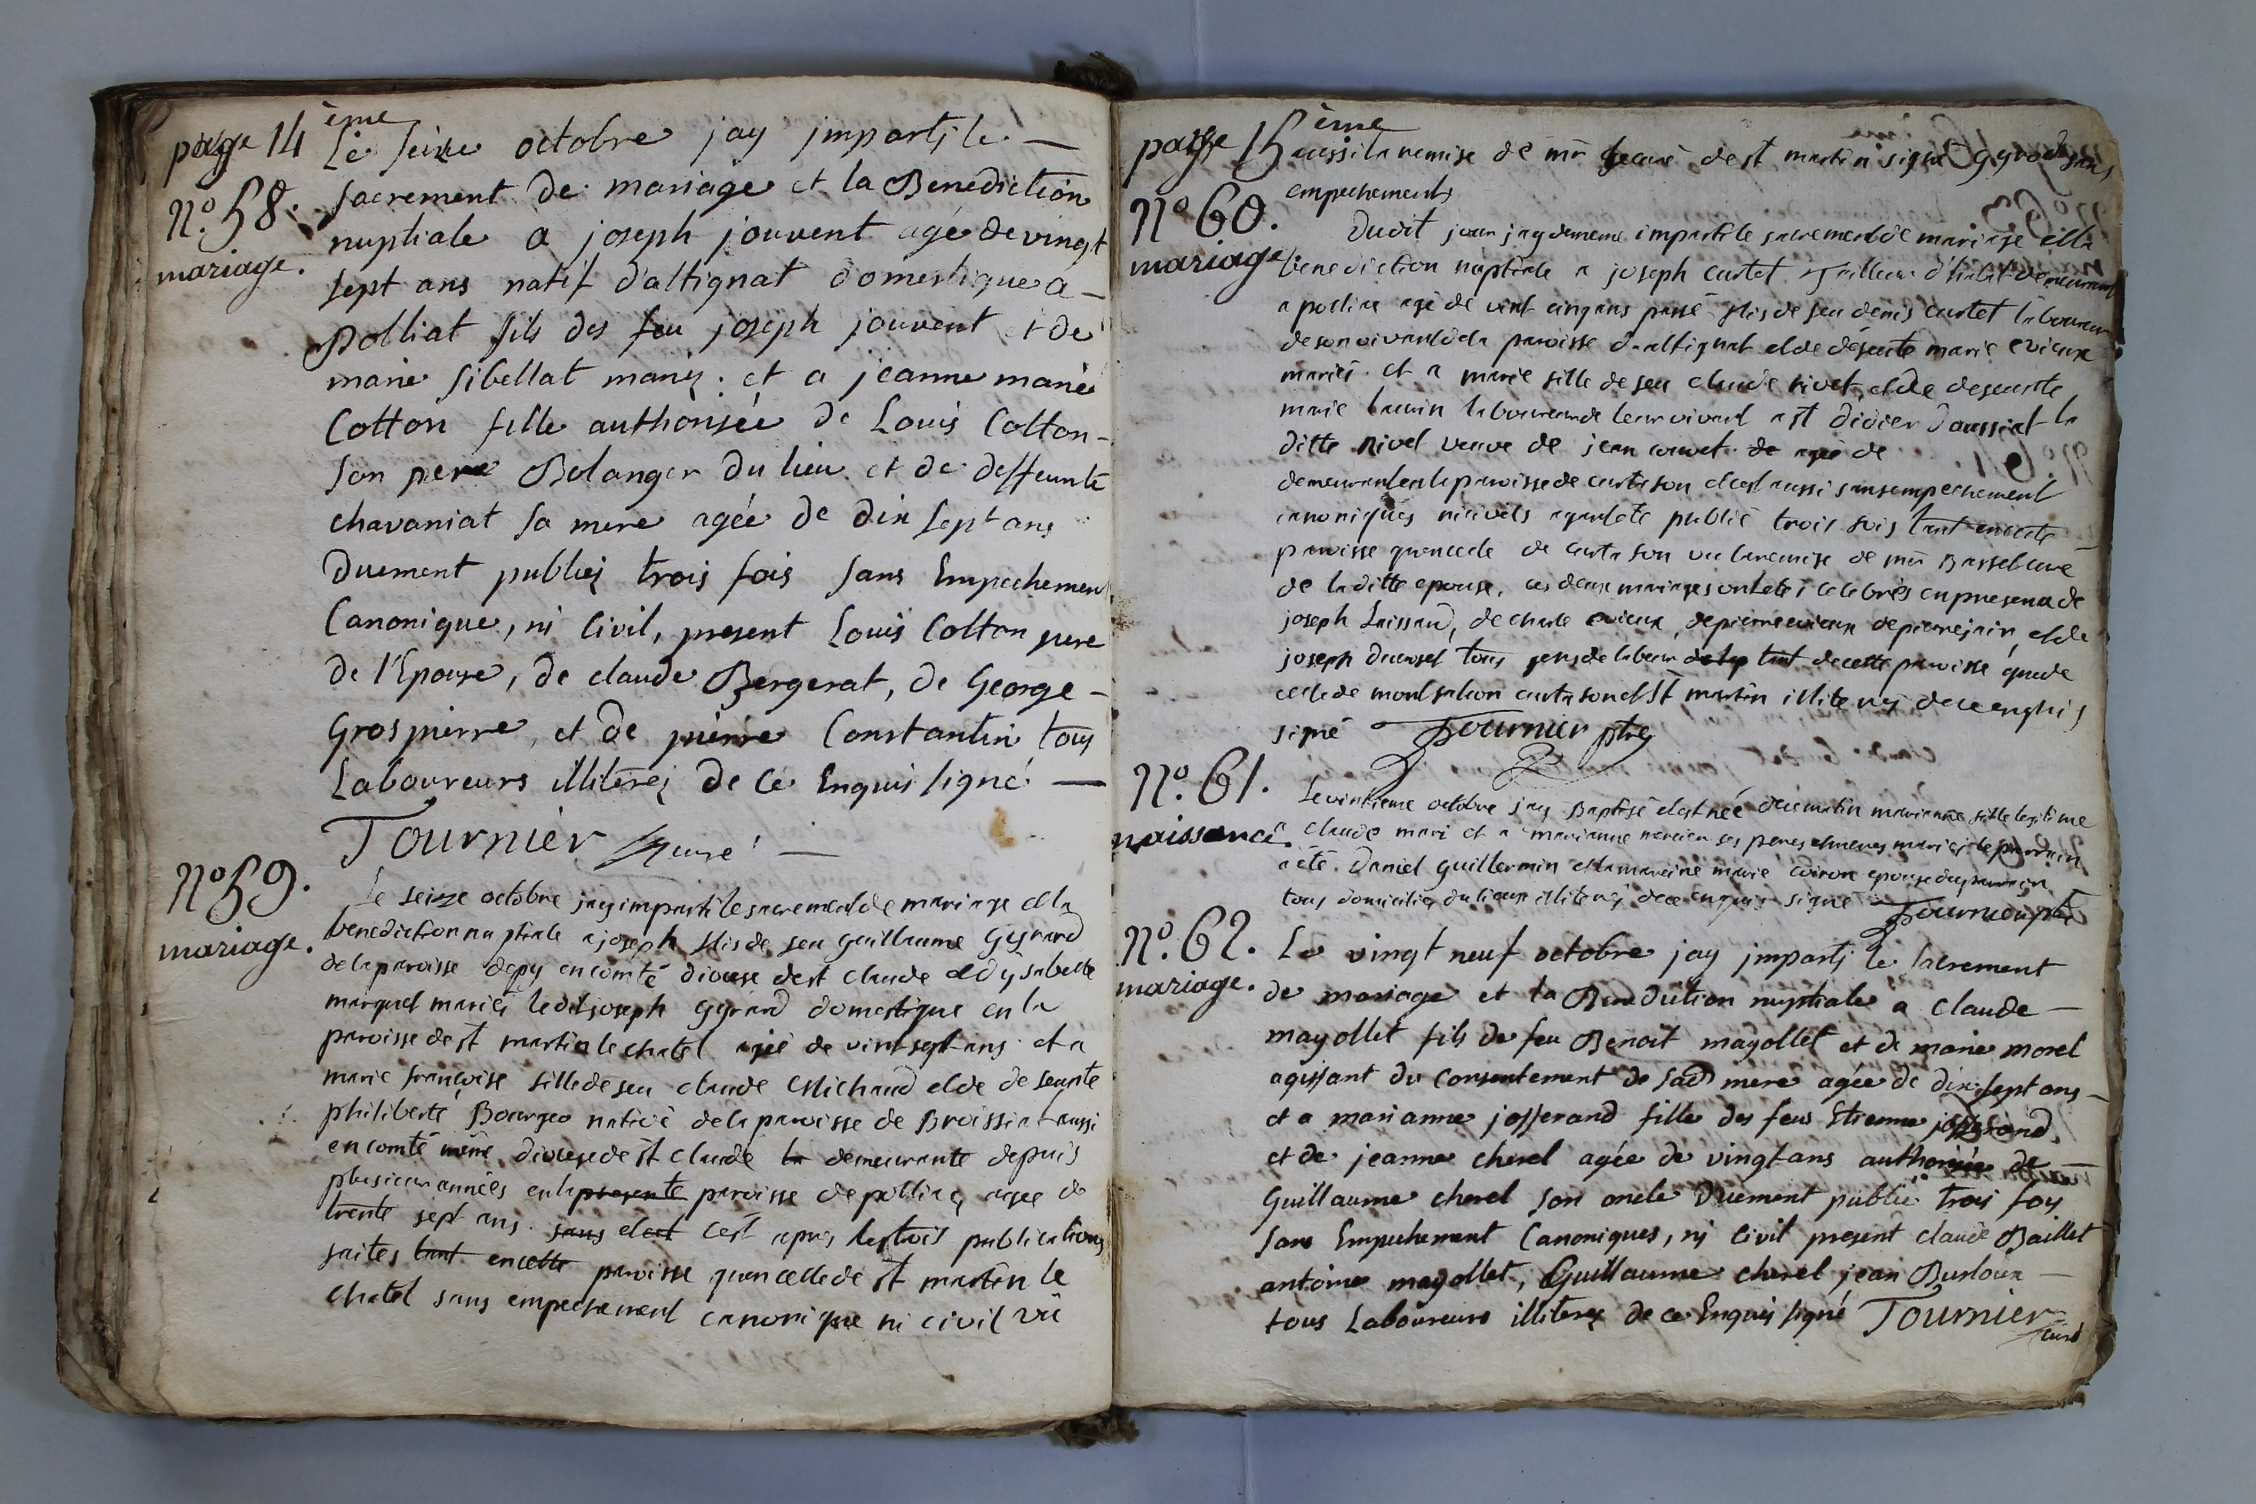 page 14 ème
Le seize octobre jay imparty le
nº. 58.
mariage.
sacrement de mariage et la Benediction
nuptiale a joseph jouvent agé de vingt
sept ans natif d'altignat domestique a
Polliat fils des feu joseph jouvent et de
marie sibellat mariez. et a jeanne marie
Cotton fille authorisée de Louis Cotton
son pere Bolanger du lieu et de deffeunte
chavaniat sa mere agée de dix sept ans
Duement publiez trois fois sans Empechement
Canonique, ni Civil, present Louis Cotton pere
de l'Epouse, de claude Bergerat, de George
Grospierre, et de pierre Constantin tous
Laboureurs illiterez de ce Enquis signé
Tournier curé
nº 59.
mariage.
Le seize octobre jay imparti le sacrement de mariage et la
benediction nuptiale a joseph fils de feu guillaume Gyrard
de la paroisse depy en comté diocese de st claude et dysabelle
marquet mariés ledit joseph gyrard domestique en la
paroisse de st martin le chatel agé de vint sept ans et a
marie françoise fille de feu claude Michaud et de defeunte
philiberte Bourgeo native de la paroisse de Broissiat aussi
en comté même diocese de st claude la demeurante depuis
plusieur années en la presente paroisse de polliaz agée de
trente sept ans. sans et est c'est apres les trois publications
faites tant en cette paroisse qu'en celle de st martin le
chatel sans empechement canonique ni civil vü
page 15 ème
aussi la remise de mr le curé de st martin signé sans
empechements
nº 60.
mariage
Dudit jour jay de meme imparti le sacrement de mariage et la
benediction nuptiale a joseph curtet Tailleur d'habit demeurant
a polliaz agé de vint cinq ans passé fils de feu denis curtet laboureur
de son vivant de la paroisse d'altignat et de defeunte marie evieux
mariés. et a marie fille de feu claude nivet, et de defeunte
marie laurin laboureur de leur vivant a st didier d'aussiat la
ditte nivet veuve de jean de agée de
demeurante en la paroisse de curtafon et c'est aussi sans empechement
canoniques ni civils ayant eté publié trois fois tant en cette
paroisse qu'en celle de curtafon vu la remise de mr Basset curé
de la ditte epouse, ces deux mariages ont eté celebrés en presence de
joseph Laissard, de charle evieux, de pierre evieux de pierre jair, et de
joseph ducrosel tous gens de labeur de la tant de cette paroisse que de
celle de montfalcon curtafon et st martin illiterés de ce enquis
signé Tournier ptre
nº. 61.
naissance.
Le vintieme octobre jay Baptisé et est née de ce matin marianne fille legitime
a claude mari et a marianne mercier ses peres et meres mariés le parrain
a été Daniel guillermin et la mareine marie coiron epouse du parrain
tous domiciliés du lieux illiterés de ce enquis signé Tournier ptre
nº. 62.
mariage.
Le vingt neuf octobre jay imparti le sacrement
de mariage et la Benediction nuptiale a claude
mayollet fils de feu Benoit mayollet et de marie morel
agissant du consentement de sad mere agée de dix sept ans
et a marianne josserand fille des feus Etienne josserand
et de jeanne cherel agée de vingt ans authorisée de
Guillaume cherel son oncle Duement publié trois fois
sans Empechement Canoniques, ni Civil present claude Baillet
antoine mayollet, Guillaume cherel jean Burloux
tous Laboureurs illiterez de ce Enquis signé Tournier
curé